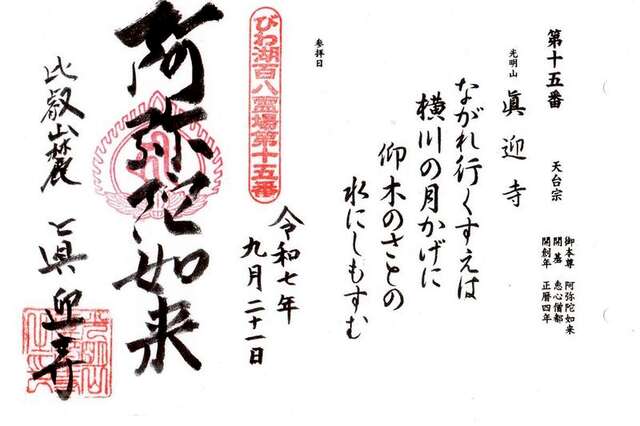 第十五番
天台宗
御本尊 阿弥陀如来
開基 恵心僧都
開創年 正暦四年
光明山 眞迎寺
ながれ行くすえは
横川の月かげに
仰木のさとの
水にしもすむ
参拝日
令和七年
九月二十一日
びわ湖百八霊場第十五番
阿弥陀如来
比叡山麓 眞迎寺